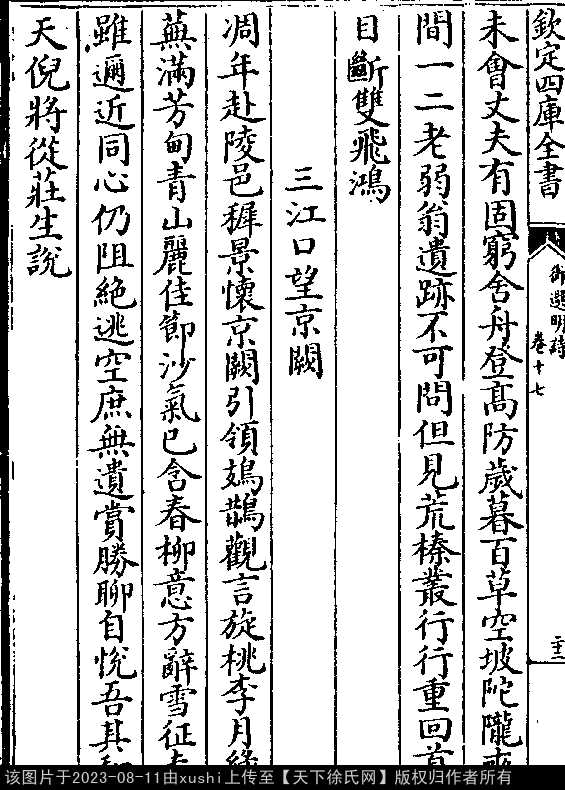 欽定四庫全書
御選明詩
卷十七
二十二
未會丈夫有固窮舍舟登高防歲暮百草空坡陀隴
間一二老弱翁遺跡不可問但見荒榛叢行行重回首
目斷雙飛鴻
三江口望京闕
凋年赴陵邑穉景懷京闕引領鳷鵲觀言旋桃李月
蕪滿芳甸青山麗佳節沙氣已含春柳意方辭雪征
雖邇近同心仍阻絶逃空庶無遺賞勝聊自悅吾其
天倪將從莊生說
该图片于2023-08-11由xushi上传至【天下徐氏网】版权归作者所有